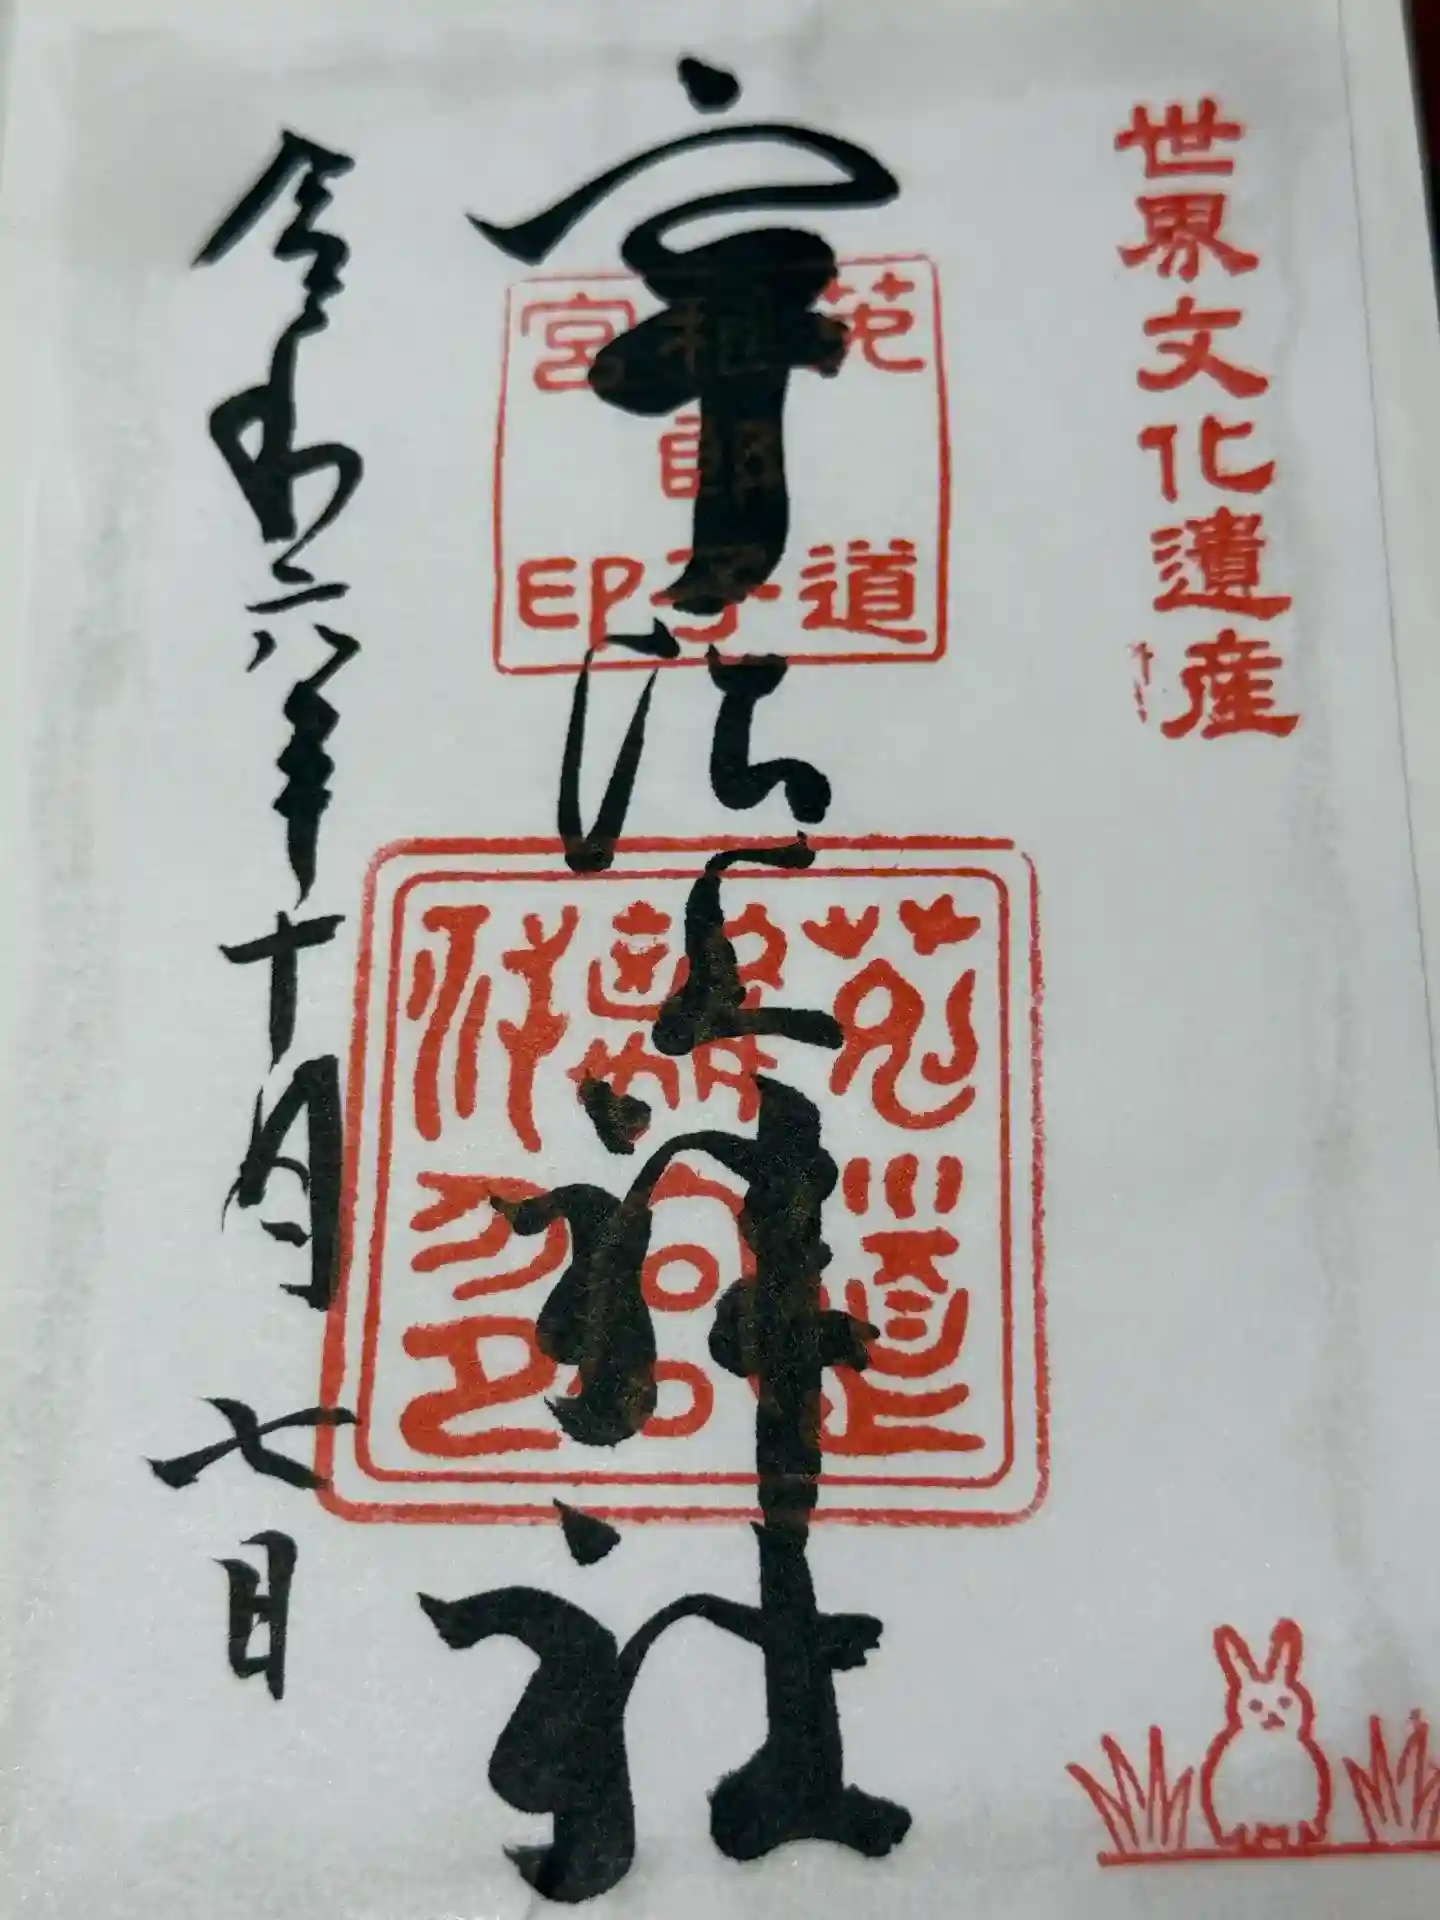 世界文化遺産
宇治上神社
菟道
稚郎子
宮印
菟道
令和六年十月七日